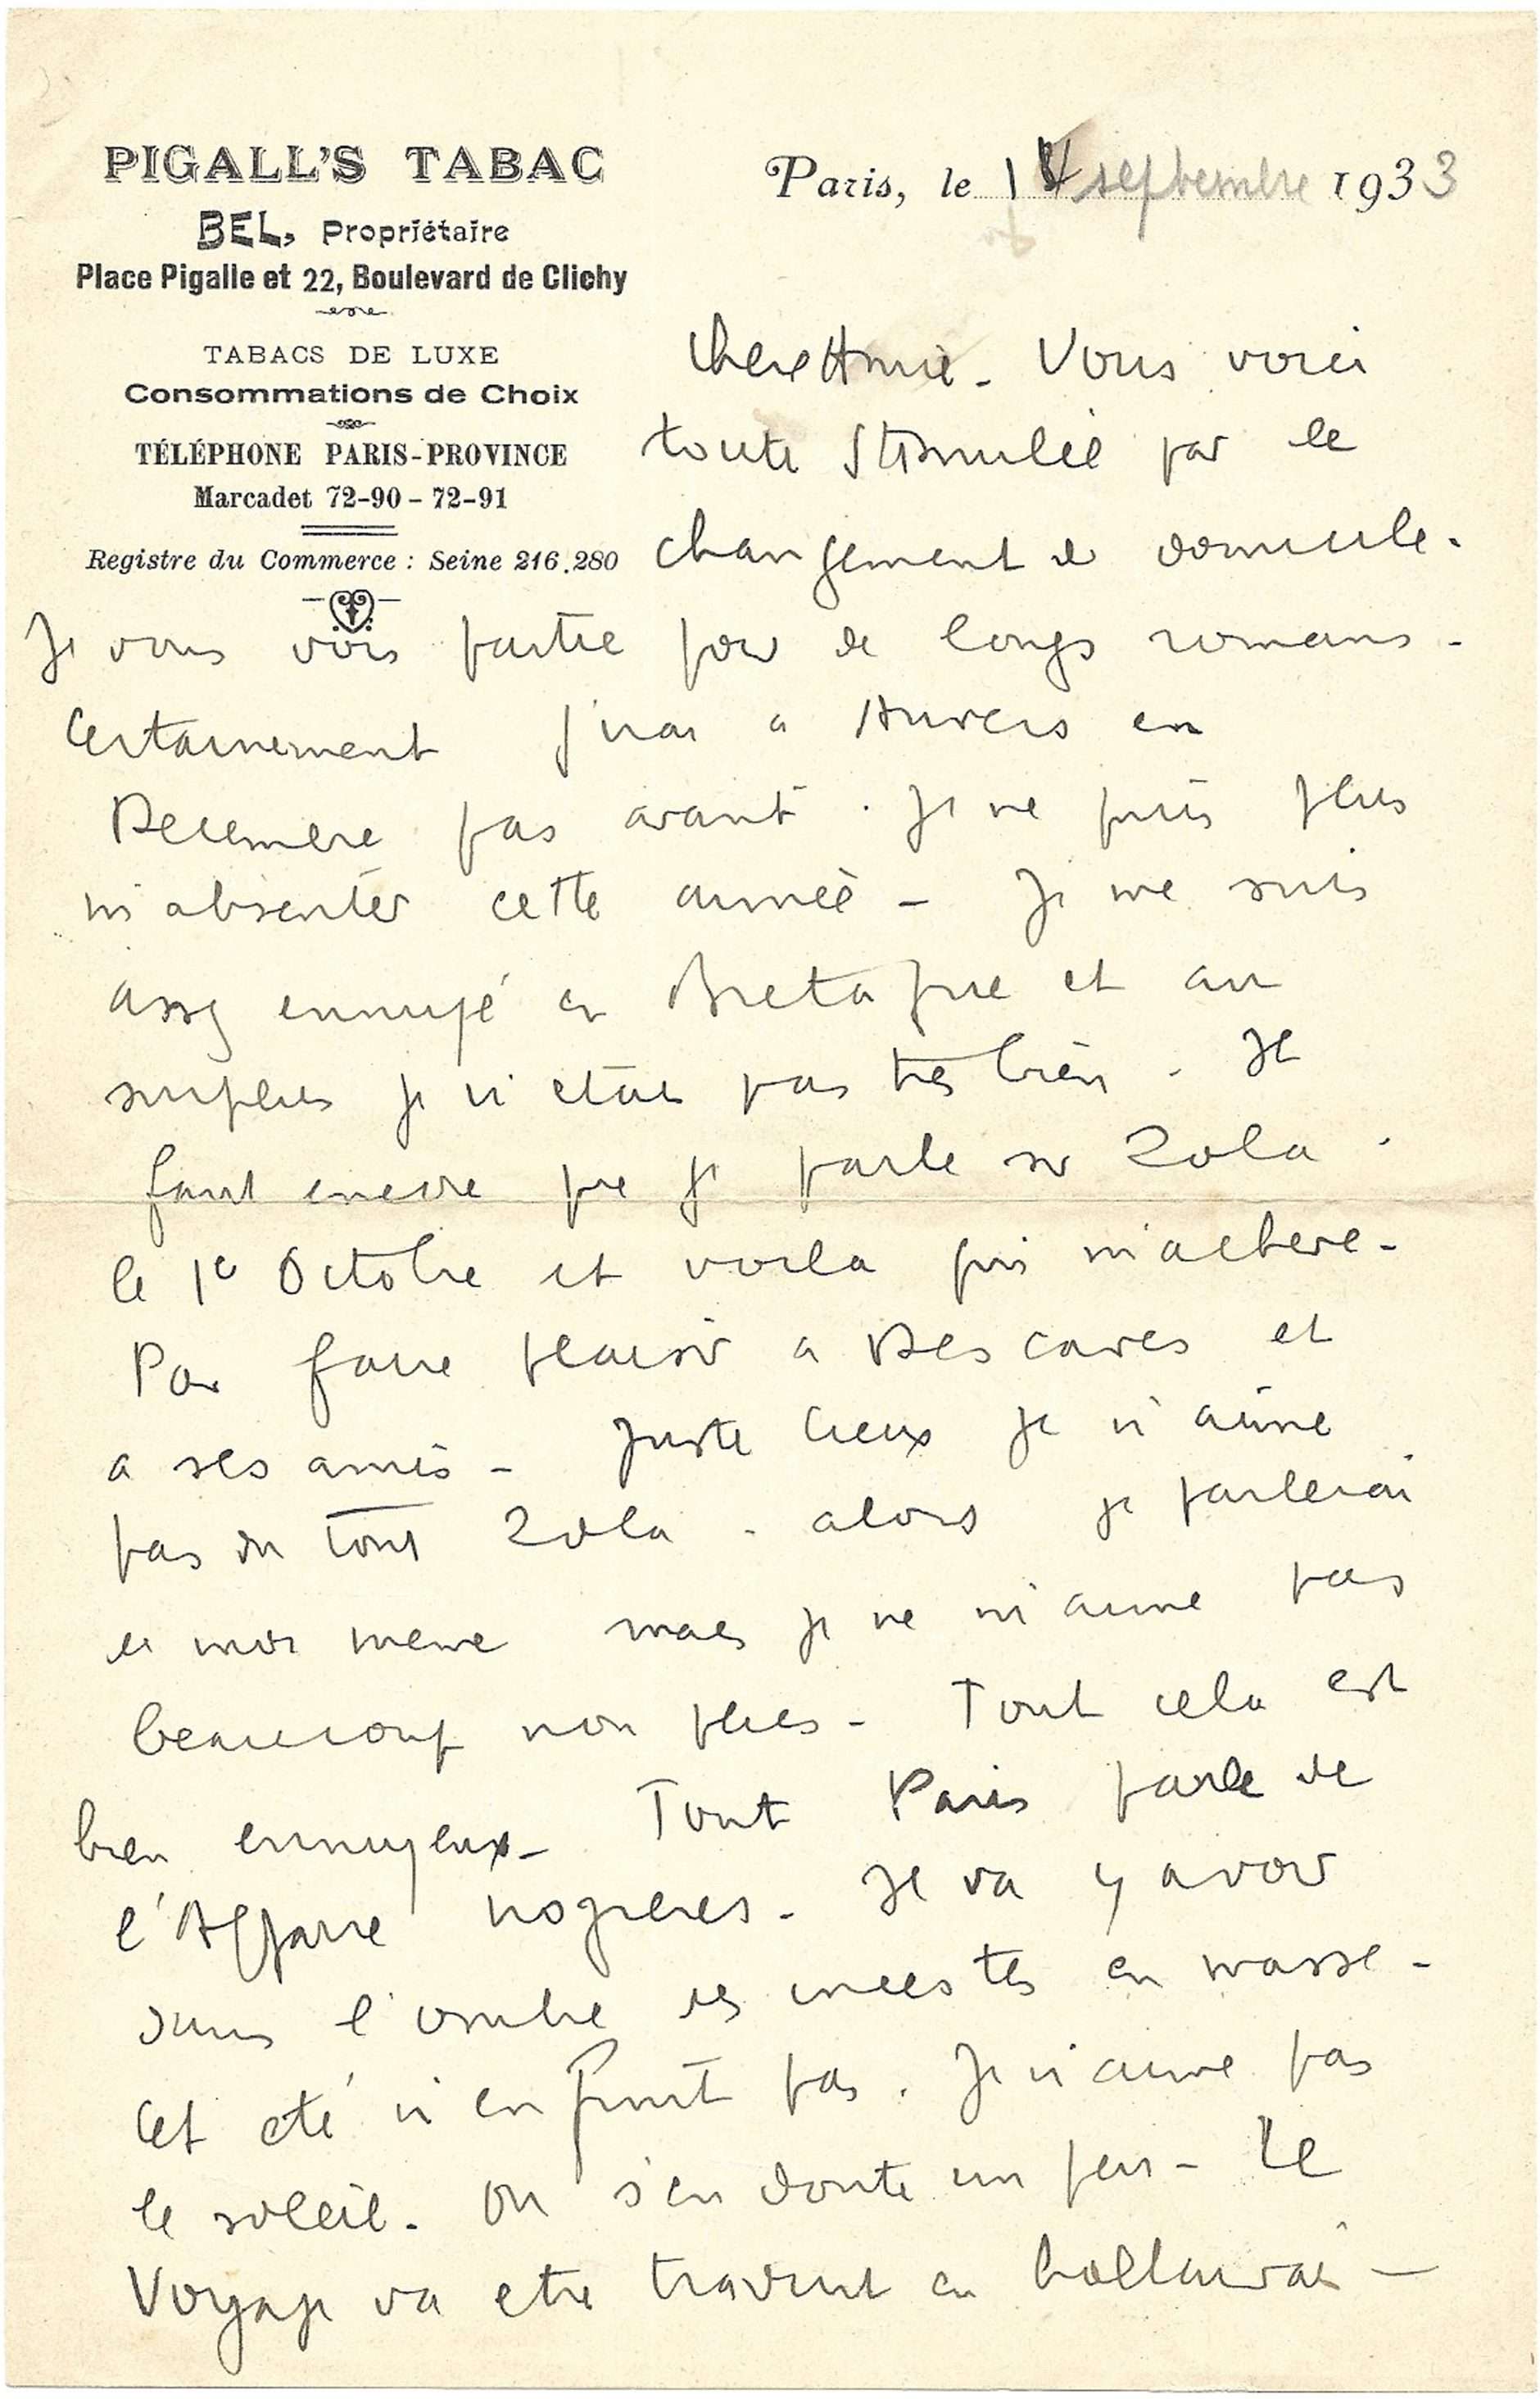 PIGALL'S TABAC
BEL, Propriétaire
Place Pigalle et 22, Boulevard de Clichy
TABACS DE LUXE
Consommations de Choix
TÉLÉPHONE PARIS-PROVINCE
Marcadet 72-90 - 72-91
Registre du Commerce : Seine 216.280
Paris, le 14 septembre 1933
Chere Amie - Vous voici
toute stimulée par le
changement de domicile.
Je vous vois partie pour de longs romans -
Certainement j'irai a Anvers en
Decembre pas avant. Je ne puis plus
m'absenter cette année - Je me suis
assez ennuyé en Bretagne et au
surplus je n'etais pas très bien. Il
faut encore que je parle sur Zola.
le 1er Octobre et voila qui m'acheve -
Pour faire plaisir a Descaves et
a ses amis - Juste Cieux je n'aime
pas du tout Zola - alors je parlerai
de moi meme mais je ne m'aime pas
beaucoup non plus - Tout cela est
bien ennuyeux - Tout Paris parle de
l'Affaire Nozieres - Il va y avoir
dans l'ombre des incestes en masse -
Cet eté n'en finit pas. Je n'aime pas
le soleil. On s'en doute un peu - Le
Voyage va etre traduit en hollandais -